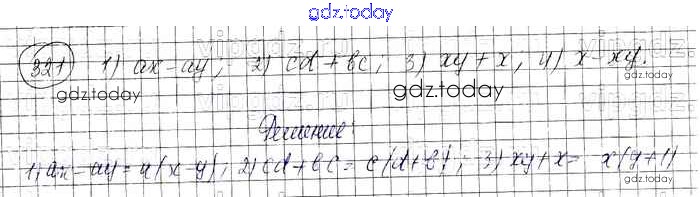 gdz.today
321 1) ax - ay; 2) cd + bc; 3) xy + x; 4) x - xy.
gdz.today gdz.today gdz.today
Решение:
1) ax - ay = a(x - y); 2) cd + bc = c(d + b); 3) xy + x = x(y + 1)
gdz.today